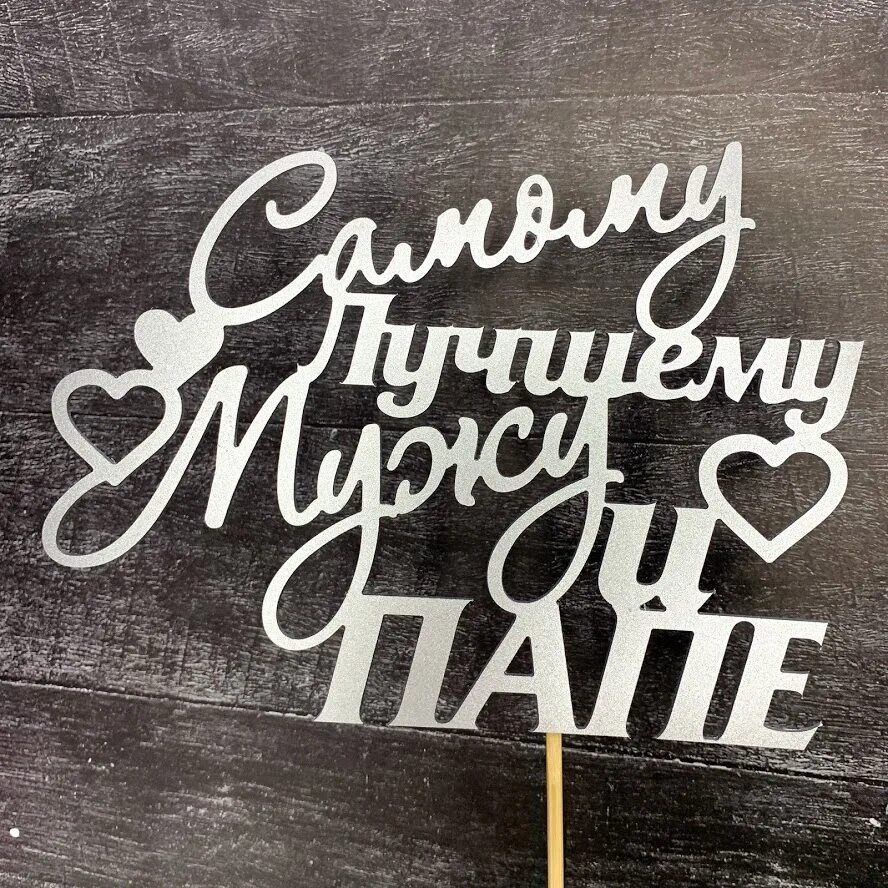 Самому
Лучшему
Мужу
и
ПАПЕ